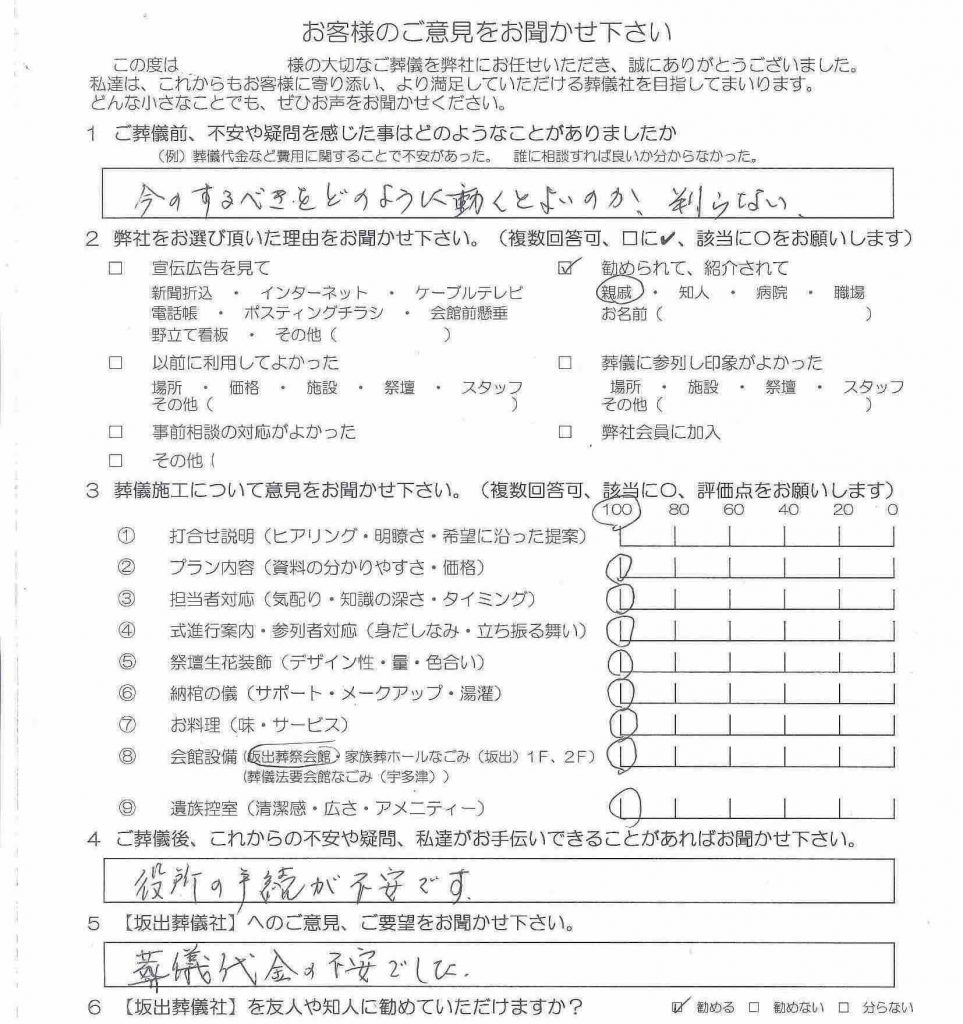 お客様のご意見をお聞かせ下さい
この度は　　　　　様の大切なご葬儀を弊社にお任せいただき、誠にありがとうございました。
私達は、これからもお客様に寄り添い、より満足していただける葬儀社を目指してまいります。
どんな小さなことでも、ぜひお声をお聞かせください。
1 ご葬儀前、不安や疑問を感じた事はどのようなことがありましたか
（例）葬儀代金など費用に関することで不安があった。 誰に相談すれば良いか分からなかった。
今のするべきをどのように動くとよいのか、判らない、
2 弊社をお選び頂いた理由をお聞かせ下さい。（複数回答可、□に✔、該当に〇をお願いします）
□ 宣伝広告を見て
新聞折込 ・ インターネット ・ ケーブルテレビ
電話帳 ・ ポスティングチラシ ・ 会館前懸垂
野立て看板 ・ その他（　　　　　）
☑ 勧められて、紹介されて
親戚 ・ 知人 ・ 病院 ・ 職場
お名前（　　　　　）
□ 以前に利用してよかった
場所 ・ 価格 ・ 施設 ・ 祭壇 ・ スタッフ
その他（　　　　　）
□ 葬儀に参列し印象がよかった
場所 ・ 施設 ・ 祭壇 ・ スタッフ
その他（　　　　　）
□ 事前相談の対応がよかった
□ 弊社会員に加入
□ その他（
3 葬儀施工について意見をお聞かせ下さい。（複数回答可、該当に〇、評価点をお願いします）
100 80 60 40 20 0
① 打合せ説明（ヒアリング・明瞭さ・希望に沿った提案）
② プラン内容（資料の分かりやすさ・価格）
③ 担当者対応（気配り・知識の深さ・タイミング）
④ 式進行案内・参列者対応（身だしなみ・立ち振る舞い）
⑤ 祭壇生花装飾（デザイン性・量・色合い）
⑥ 納棺の儀（サポート・メークアップ・湯灌）
⑦ お料理（味・サービス）
⑧ 会館設備（坂出葬祭会館・家族葬ホールなごみ（坂出）1F、2F）
（葬儀法要会館なごみ（宇多津））
⑨ 遺族控室（清潔感・広さ・アメニティー）
4 ご葬儀後、これからの不安や疑問、私達がお手伝いできることがあればお聞かせ下さい。
役所の手続が不安です.
5 【坂出葬儀社】へのご意見、ご要望をお聞かせ下さい。
葬儀代金の不安でした.
6 【坂出葬儀社】を友人や知人に勧めていただけますか？ ☑ 勧める □ 勧めない □ 分らない